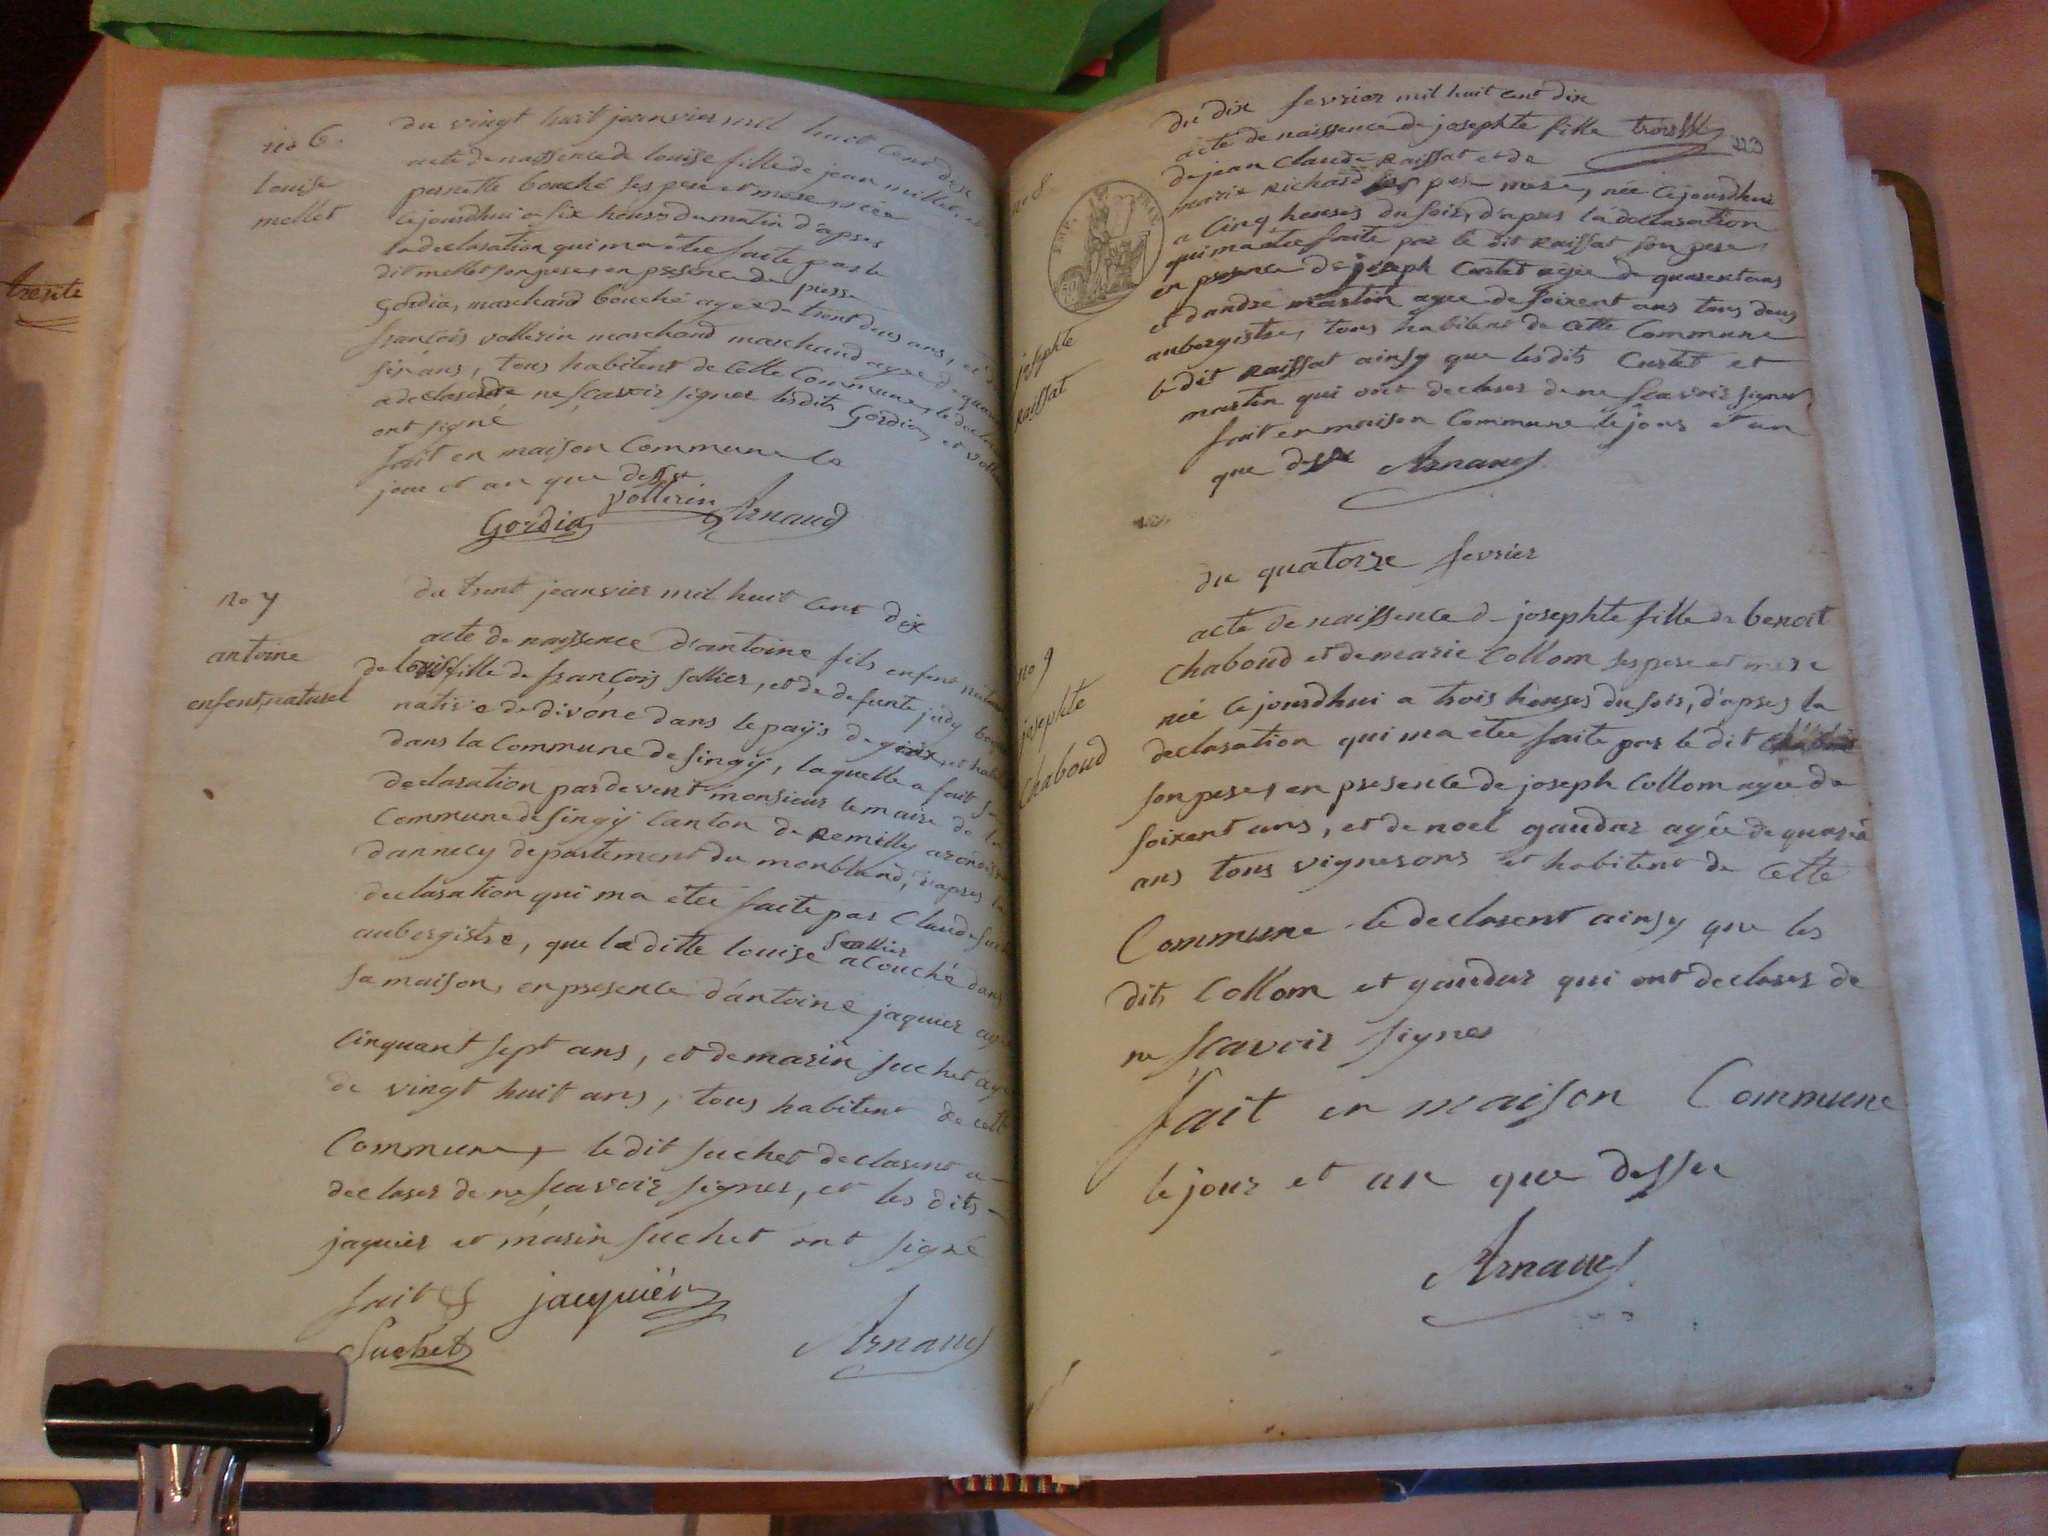 tresite
no 6.
louise
mellet
du vingt huit jeanvier mil huit cent dix
acte de naissence de louise fille de jean millet, et
pernette bouché ses pere et mere, née
cejourdhui a six heures du matin d'apres
la declaration qui ma etée faite par le
dit mellet son pere, en presence de pierre
Gordia, marchand bouché agee de trent deus ans, et
françois vollerin marchand marchand agee de
six ans, tous habitent de cette Commune, le
a declarer de ne scavoir signer lesdits Gordia, et
ont signé
fait en maison Commune le
jour et an que dessu
Gordia vollerin Arnaud
no 7
antoine
enfent naturel
du trent jeanvier mil huit cent dix
acte de naissence d'antoine fils enfent
de louise fille de françois sollier, et de defunte judy
native de divone dans le paÿs de gex, et
dans la Commune de singÿ, laquelle a fait sa
declaration pardevent monsieur le maire de la
Commune de singÿ Canton de Remilly
dannecy departement du monbland, d'apres la
declaration qui ma etée faite par Claude
aubergistre, que la ditte louise Seallier acouché dans
sa maison, en presence d'antoine jaquier agee
cinquant sept ans, et de marin suchet agee
de vingt huit ans, tous habitent de cette
Commune, le dit suchet declarent a
declarer de ne scavoir signer, et les dits
jaquier et marin suchet ont signé
fait & jacquiér
Suchet Arnaud
223
no 8
josephte
Raissat
EMP. FRAN.
du dix fevrier mil huit cent dix
acte de naissence de josephte fille
de jean Claude Raissat et de
marie Richard pere mere, née cejourdhui
a cinq heures du soir, d'apres la declaration
qui ma etée faite par le dit Raissat son pere,
en presence de joseph Curtet agee de quarent ans
et dandré martin agee de soixent ans tous deus
aubergistre, tous habitent de cette Commune
le dit Raissat ainsy que les dits Curtet et
martin qui ont declarer de ne scavoir signer
fait en maison Commune le jour et an
que dessu Arnaud
no 9
josephte
Chaboud
du quatorze fevrier
acte de naissence de josephte fille de benoit
Chaboud et de marie Collom ses pere et mere
née cejourdhui a trois heures du soir, d'apres la
declaration qui ma etée faite par le dit
son pere, en presence de joseph Collom agee de
soixent ans, et de noel gaudar agée de quarent
ans tous vignerons et habitent de cette
Commune le declarent ainsy que les
dits Collom et gaudar qui ont declarer de
ne scavoir signer
fait en maison Commune
le jour et an que dessu
Arnaud